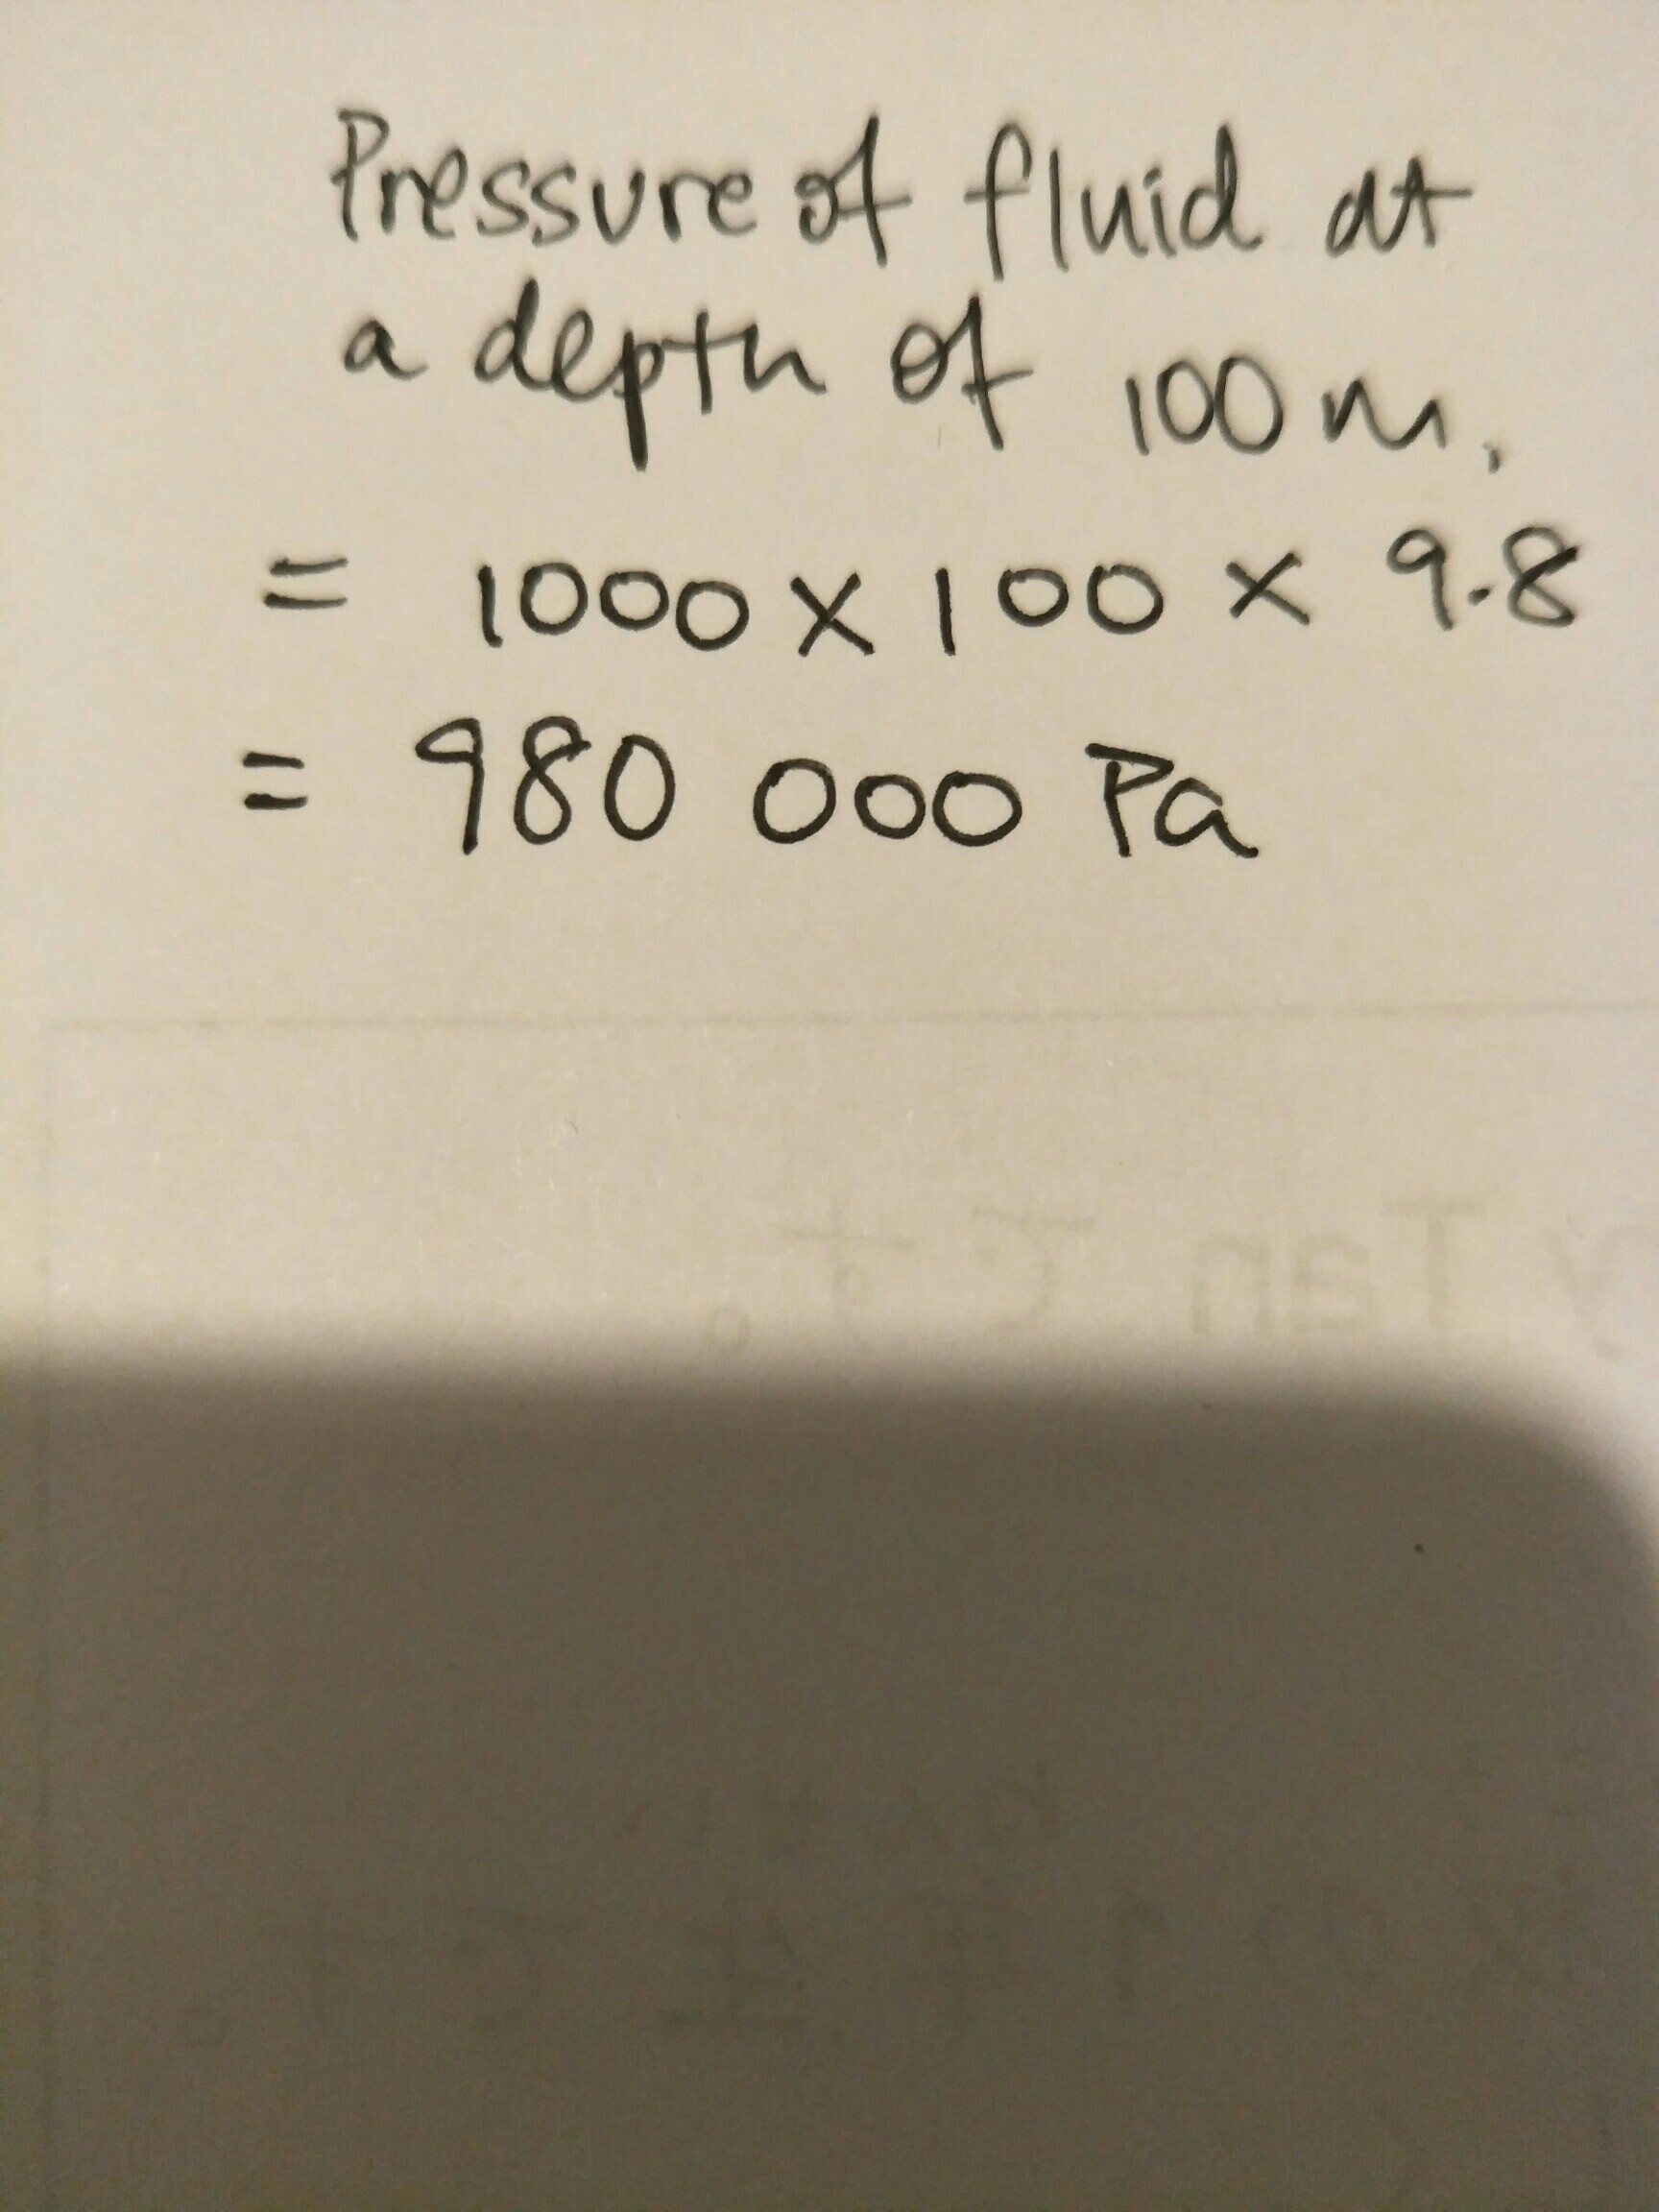 Pressure of fluid at
a depth of 100 m,
= 1000 × 100 × 9.8
= 980 000 Pa